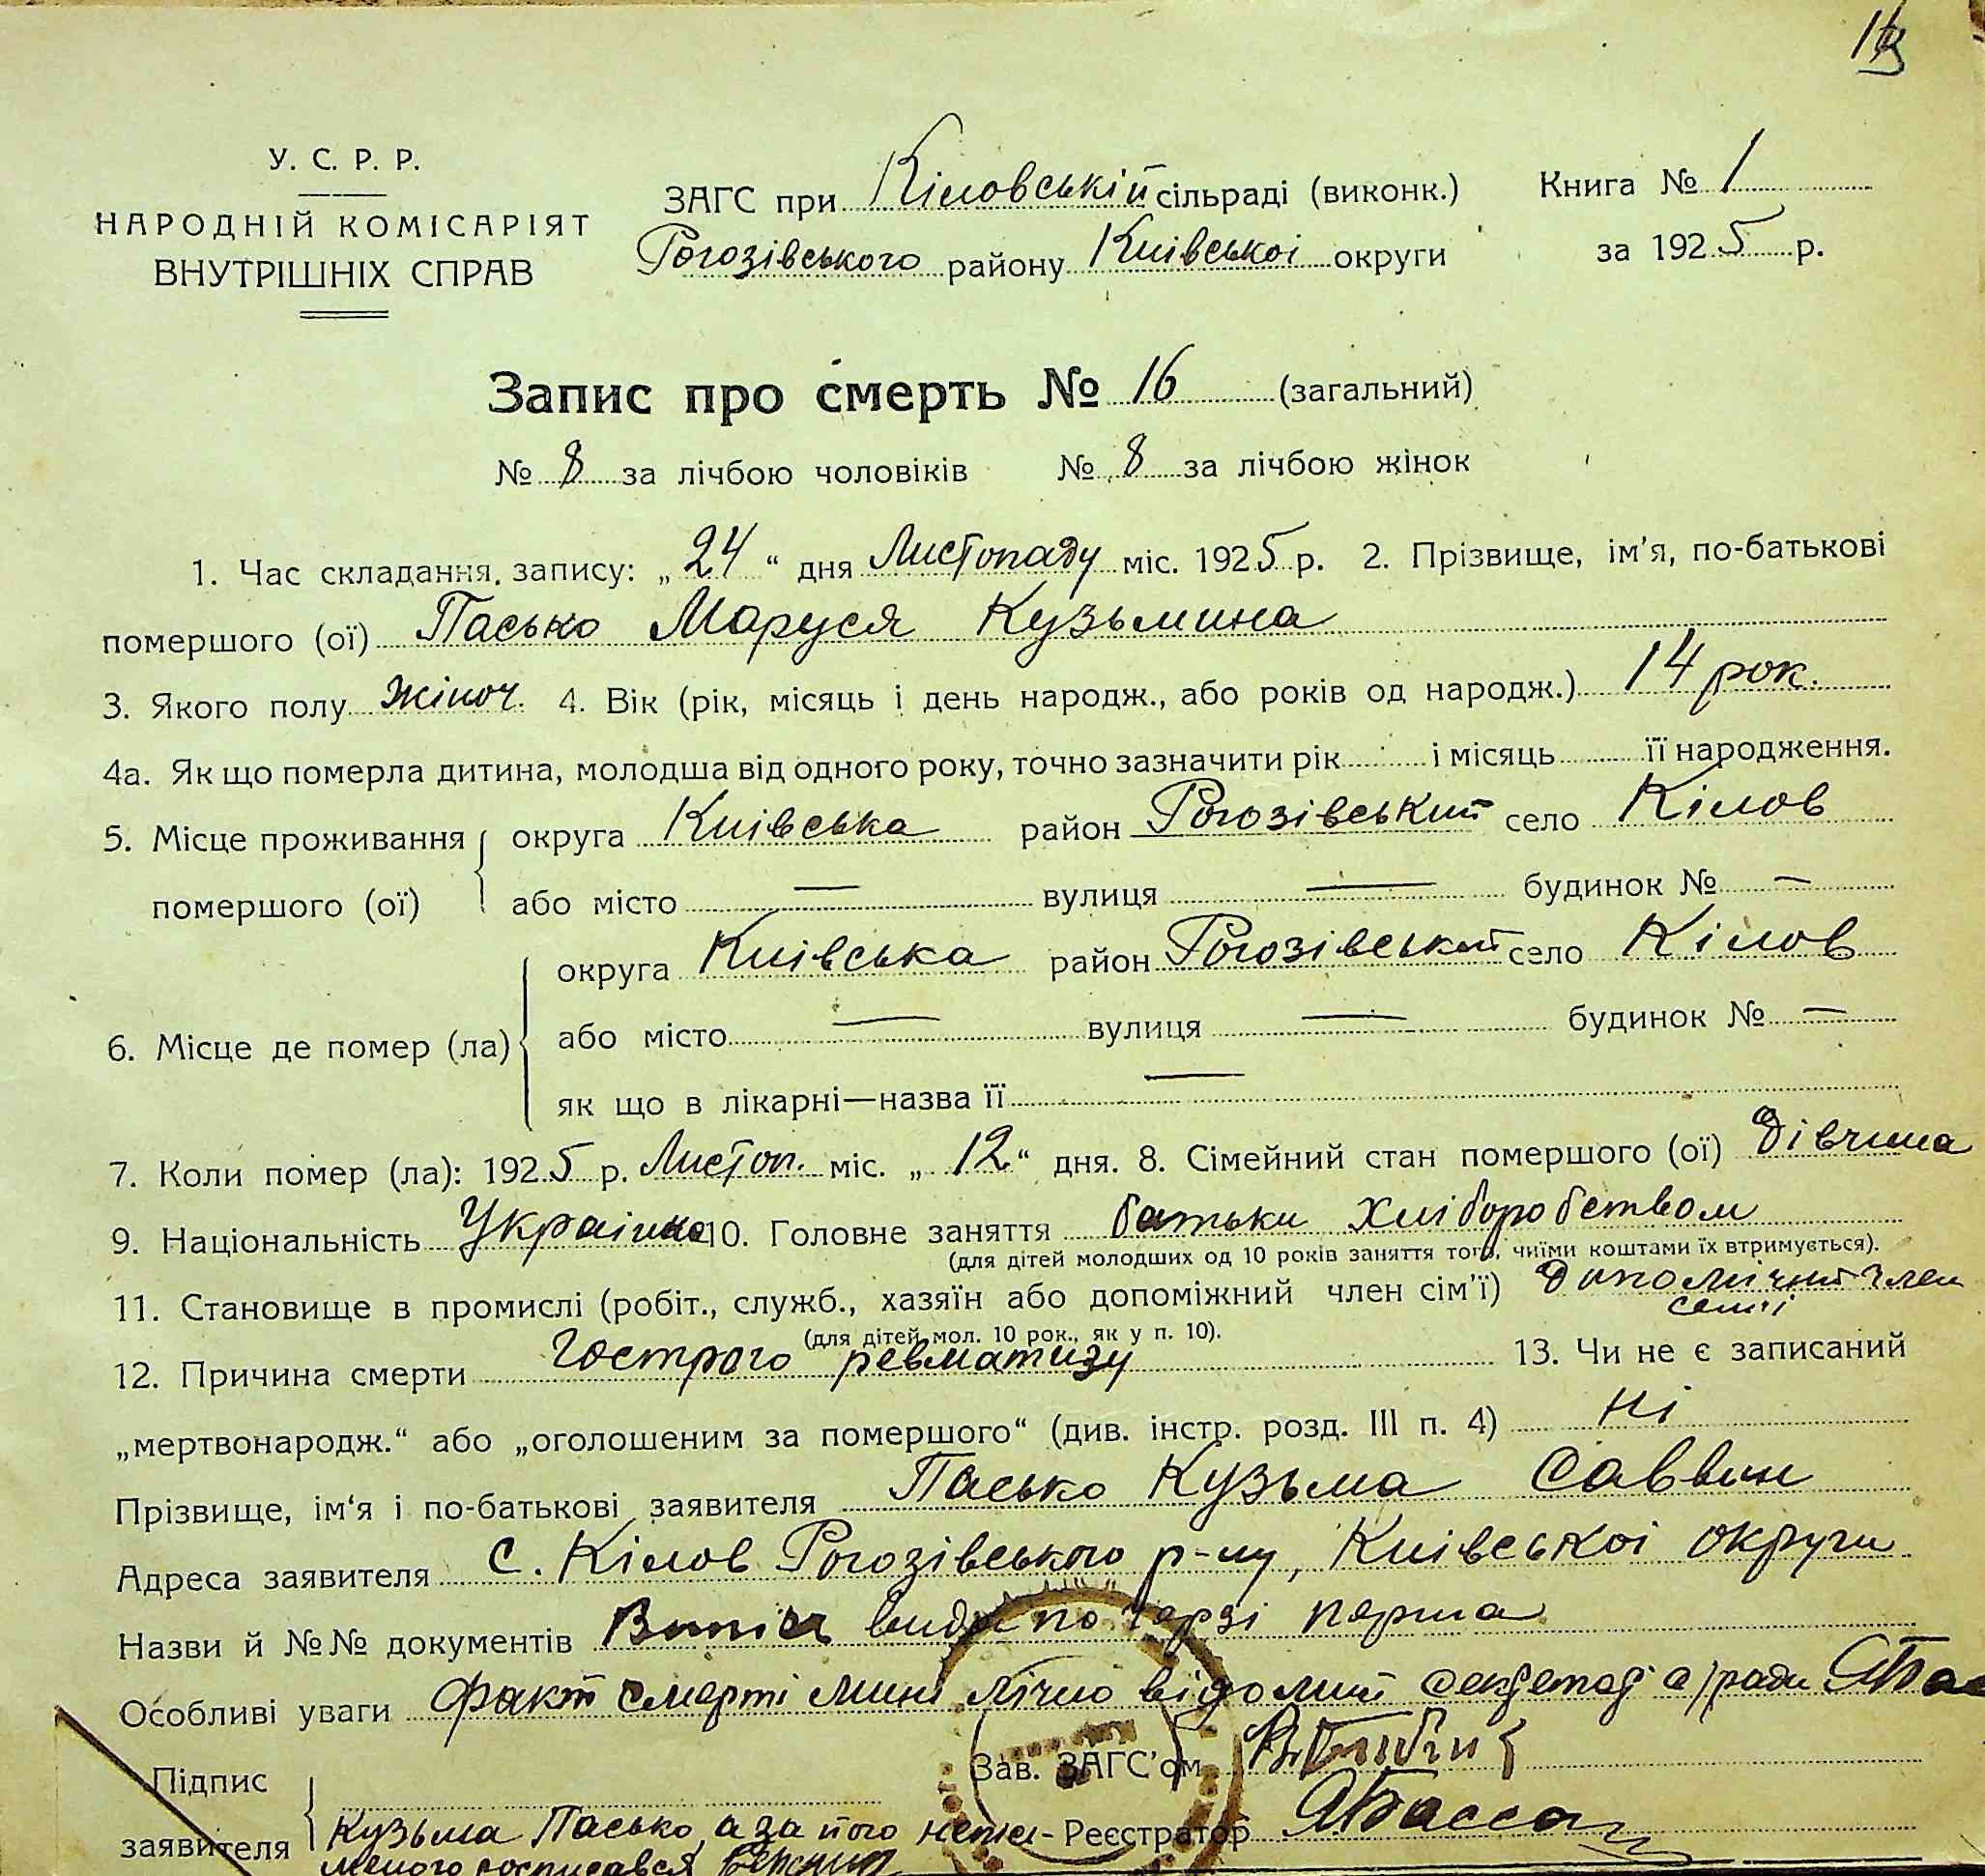 У. С. Р. Р.
НАРОДНІЙ КОМІСАРІЯТ
ВНУТРІШНІХ СПРАВ
ЗАГС при Кіловській сільраді (виконк.)
Рогозівського району Київської округи
Книга № 1
за 1925 р.
Запис про смерть № 16 (загальний)
№ 8 за лічбою чоловіків № 8 за лічбою жінок
1. Час складання запису: „24“ дня Листопаду міс. 1925 р. 2. Прізвище, ім’я, по-батькові
помершого (ої) Пасько Маруся Кузьмина
3. Якого полу жіноч. 4. Вік (рік, місяць і день народж., або років од народж.) 14 рок.
4а. Як що померла дитина, молодша від одного року, точно зазначити рік і місяць її народження.
5. Місце проживання округа Київська район Рогозівський село Кілов
помершого (ої) або місто — вулиця — будинок № —
округа Київська район Рогозівський село Кілов
6. Місце де помер (ла) або місто — вулиця — будинок № —
як що в лікарні—назва її —
7. Коли помер (ла): 1925 р. Листоп. міс. „12“ дня. 8. Сімейний стан помершого (ої) дівчина
9. Національність Українка 10. Головне заняття батьки хліборобством
(для дітей молодших од 10 років заняття того, чиїми коштами їх втримується).
11. Становище в промислі (робіт., служб., хазяїн або допоміжний член сім’ї) допомічний член
семїі
(для дітей мол. 10 рок., як у п. 10).
12. Причина смерти Гострого ревматизу 13. Чи не є записаний
„мертвонародж.“ або „оголошеним за помершого“ (див. інстр. розд. III п. 4) ні
Прізвище, ім‘я і по-батькові заявителя Пасько Кузьма Саввич
Адреса заявителя с. Кілов Рогозівського р-ну, Київської округи
Назви й №№ документів Випис по черзі перша
Особливі уваги факт смерті мині лічно відомий секретар с/ради
Підпис
заявителя
Зав. ЗАГС’ом
Кузьма Пасько, а за його непись- Реєстратор ЯБасса
меного росписався